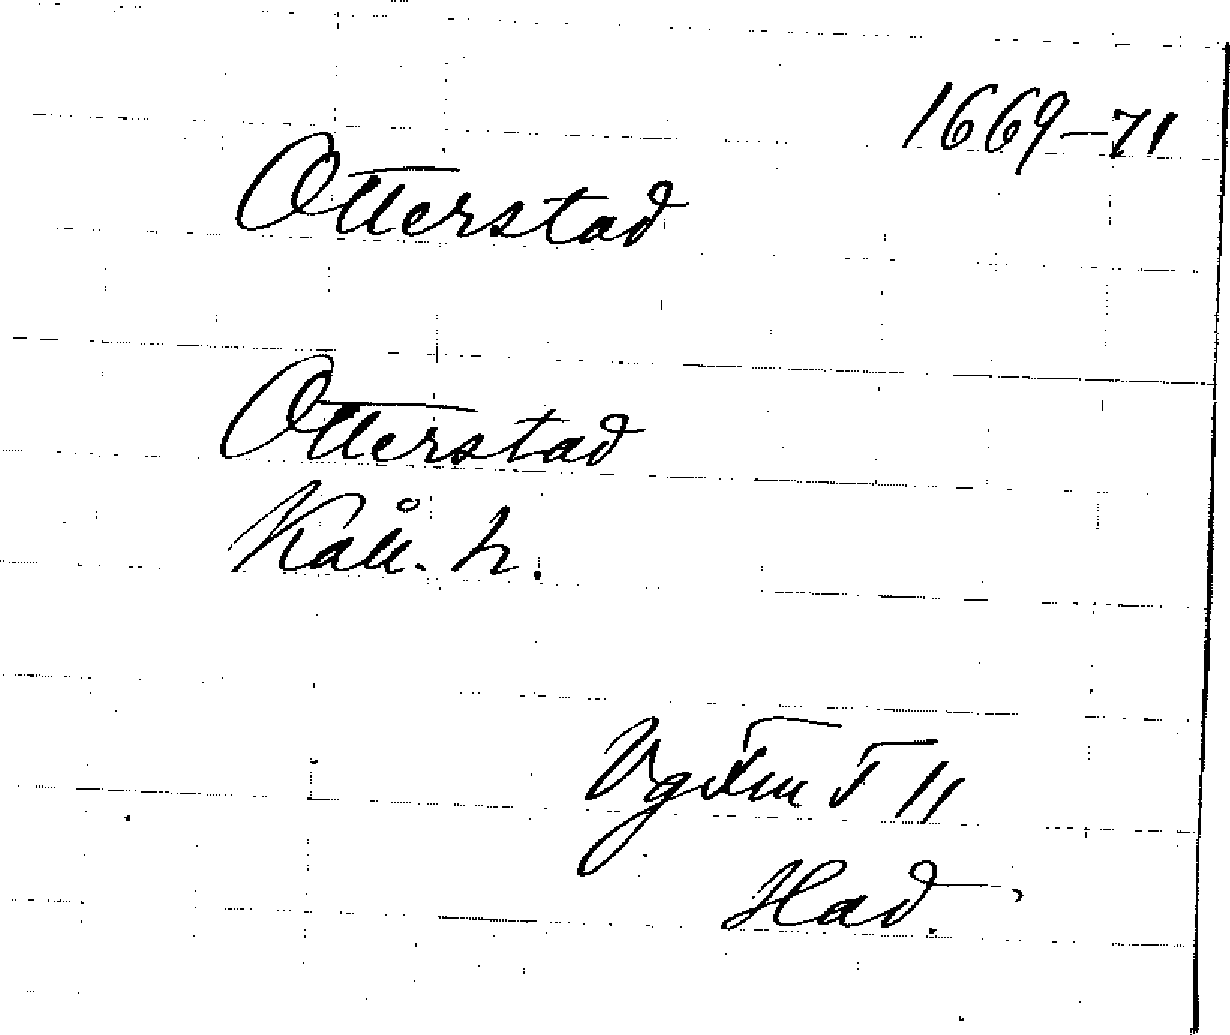 1669–71
Otterstad
Otterstad
Kåll. h.
Had.